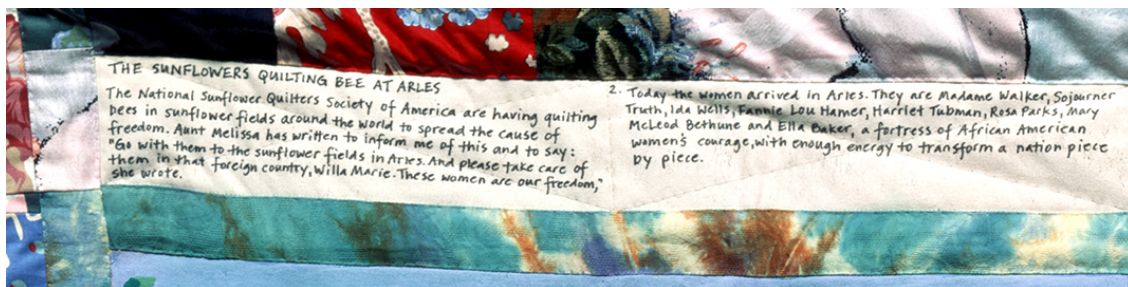 THE SUNFLOWERS QUILTING BEE AT ARLES
The National Sunflower Quilters Society of America are having quilting
bees in sunflower fields around the world to spread the cause of
freedom. Aunt Melissa has written to inform me of this and to say:
"Go with them to the sunflower fields in Arles. And please take care of
them in that foreign country, Willa Marie. These women are our freedom,"
she wrote.
2. Today the women arrived in Arles. They are Madame Walker, Sojourner
Truth, Ida Wells, Fannie Lou Hamer, Harriet Tubman, Rosa Parks, Mary
McLeod Bethune and Ella Baker, a fortress of African American
women's courage, with enough energy to transform a nation piece
by piece.